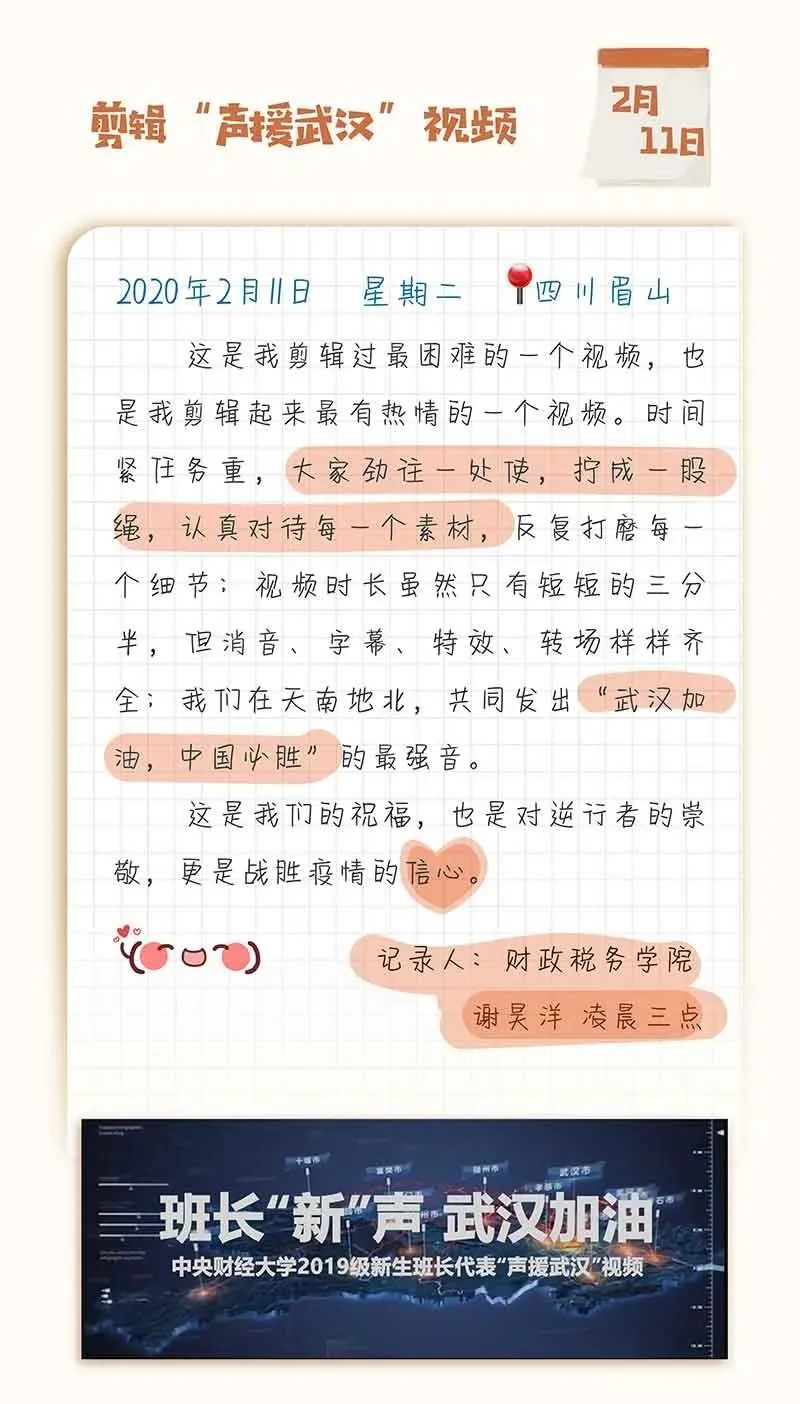 剪辑“声援武汉”视频
2月
11日
2020年2月11日 星期二 四川眉山
这是我剪辑过最困难的一个视频，也
是我剪辑起来最有热情的一个视频。时间
紧任务重，大家劲往一处使，拧成一股
绳，认真对待每一个素材，反复打磨每一
个细节；视频时长虽然只有短短的三分
半，但消音、字幕、特效、转场样样齐
全；我们在天南地北，共同发出“武汉加
油，中国必胜”的最强音。
这是我们的祝福，也是对逆行者的崇
敬，更是战胜疫情的信心。
记录人：财政税务学院
谢昊洋 凌晨三点
十堰市
襄樊市
随州市
武汉市
孝感市
班长“新”声 武汉加油
中央财经大学2019级新生班长代表“声援武汉”视频